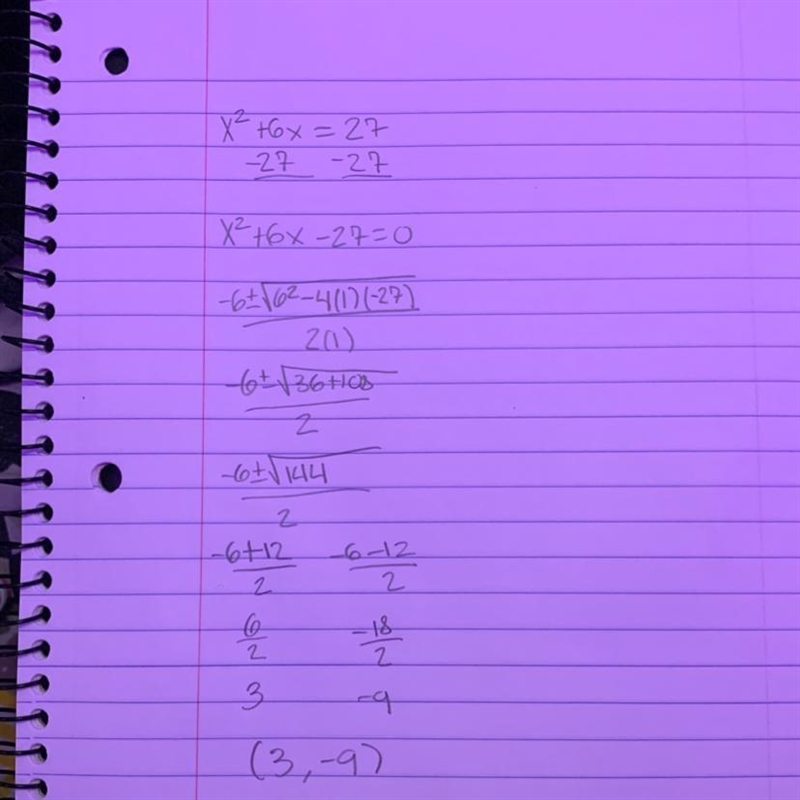 x² + 6x = 27
-27 -27
x² + 6x - 27 = 0
-6 ± √6² - 4(1)(-27)
2(1)
-6 ± √36 + 108
2
-6 ± √144
2
-6 + 12 -6 - 12
2 2
6 -18
2 2
3 -9
(3, -9)